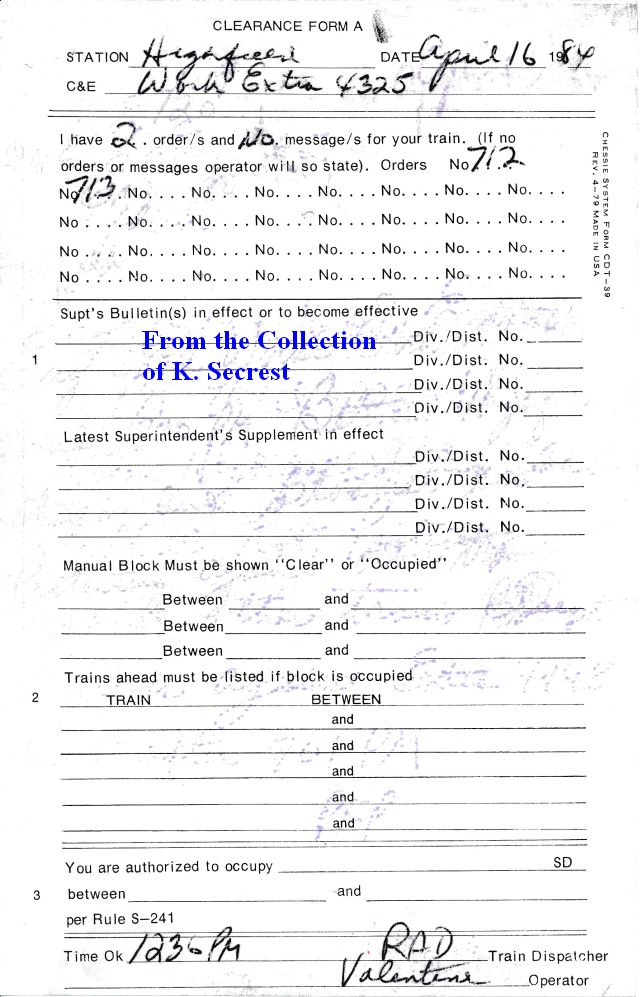 CLEARANCE FORM A
STATION Highfield DATE April 16 1984
C&E Work Extra 4325
I have 2 . order/s and No. message/s for your train. (If no
orders or messages operator will so state). Orders No 712
No 713. No. . . . No. . . . No. . . . No. . . . No. . . . No. . . . No. . . .
No . . . . No. . . . No. . . . No. . . . No. . . . No. . . . No. . . . No. . . .
No . . . . No. . . . No. . . . No. . . . No. . . . No. . . . No. . . . No. . . .
No . . . . No. . . . No. . . . No. . . . No. . . . No. . . . No. . . . No. . . .
CHESSIE SYSTEM FORM CDT-39
REV. 4-79 MADE IN USA
Supt's Bulletin(s) in effect or to become effective
Div./Dist. No.
From the Collection
1 Div./Dist. No.
of K. Secrest
Div./Dist. No.
Div./Dist. No.
Latest Superintendent's Supplement in effect
Div./Dist. No.
Div./Dist. No.
Div./Dist. No.
Div./Dist. No.
Manual Block Must be shown "Clear" or "Occupied"
Between and
Between and
Between and
Trains ahead must be listed if block is occupied
2 TRAIN BETWEEN
and
and
and
and
and
You are authorized to occupy SD
3 between and
per Rule S-241
Time Ok 1236 PM RAD Train Dispatcher
Valentine Operator